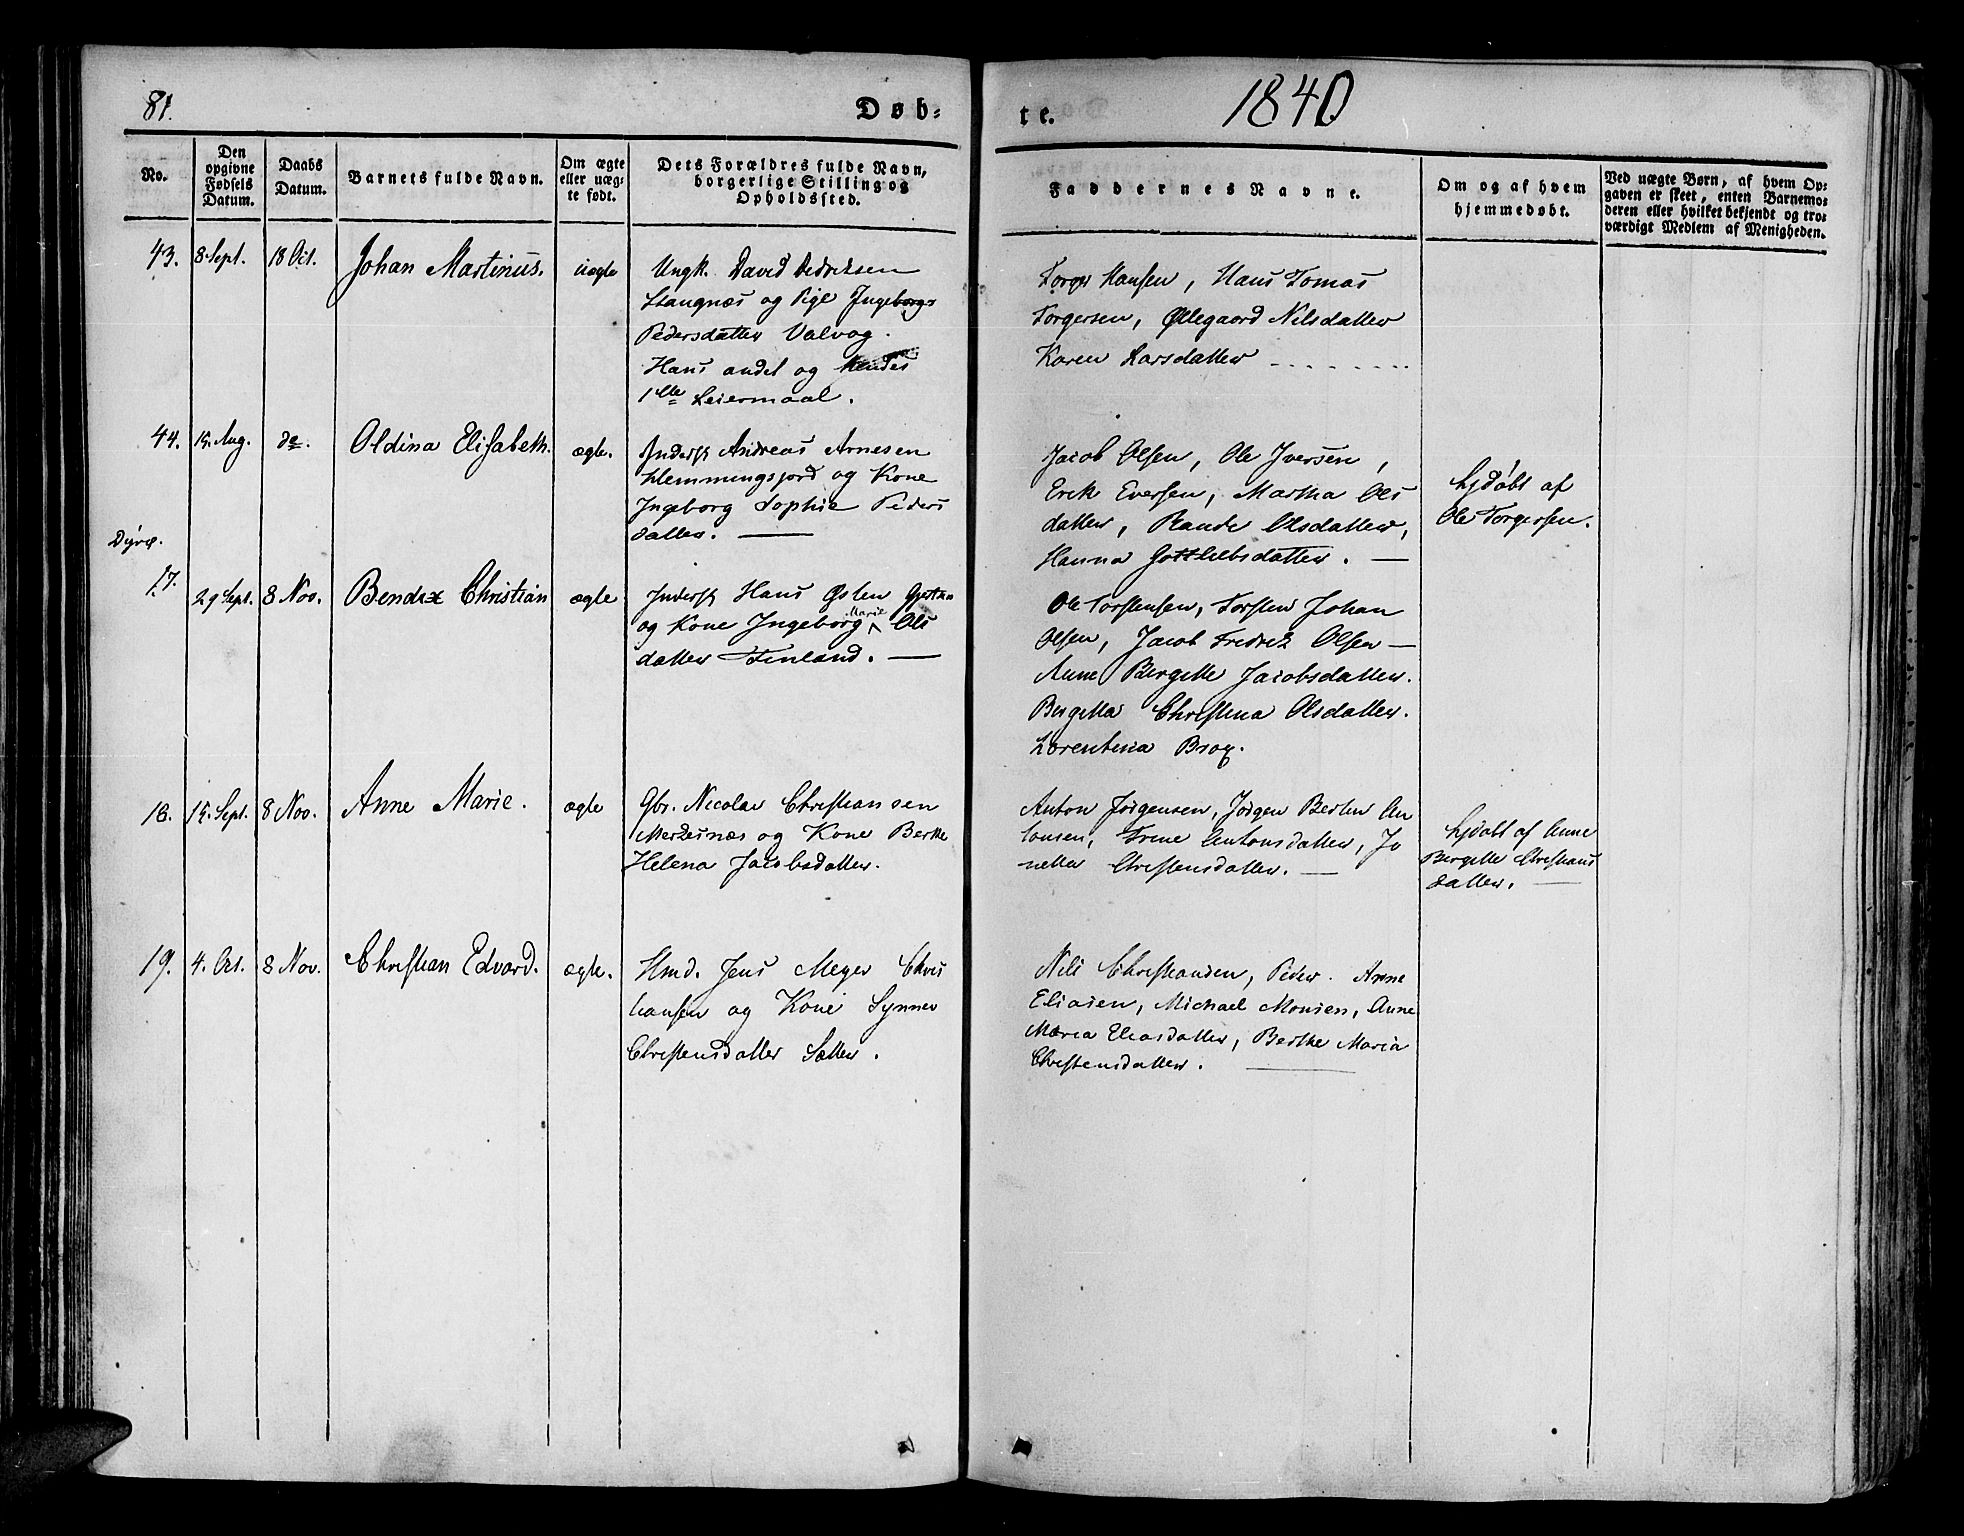 81.
Døb=
te.
1840
No.
Den
opgivne
Fødsels
Datum.
Daabs
Datum.
Barnets fulde Navn.
Om ægte
eller uæg-
te født.
Dets Forældres fulde Navn,
borgerlige Stilling og
Opholdssted.
Faddernes Navne.
Om og af hvem
hjemmedøbt.
Ved uægte Børn, af hvem Op-
gaven er skeet, enten Barnemo-
deren eller hvilket bekjendt og tro-
værdigt Medlem af Menigheden.
43. 8 Sept. 18 Oct. Johan Martinus. uægte
Ungk. David Dedriksen
Stangnæs og Pige Ingeborg
Pedersdatter Valvog.
Hans andet og Hendes
1ste Leiermaal.
Torger Hansen, Hans Tomas
Torgersen, Øllegaard Nilsdatter
Karen Larsdatter
44. 15. Aug. do. Oldina Elisabeth. ægte.
Inderst Andreas Arnesen
Klemmingsfjord og Kone
Ingeborg Sophie Peders
datter. —
Jacob Olsen, Ole Iversen,
Erik Eversen, Martha Ols
datter, Rande Olsdatter,
Hanna Gottliebsdatter. —
hjdøbt af
Ole Torgersen.
Dyrø.
17. 29 Sept. 8 Nov. Bendix Christian ægte
Inderst Hans Østen
og Kone Ingeborg Marie Ols
datter Finland. —
Ole Torstensen, Torsten Johan
Olsen, Jacob Fredrik Olsen —
Anne Bergitte Jacobsdatter.
Bergitta Christina Olsdatter.
Lorentina Brox.
18. 15. Sept. 8 Nov. Anne Marie. ægte
Gbr. Nicolai Christiansen
Merkesnæs og Kone Berthe
Helena Jacobsdatter.
Anton Jørgensen, Jørgen Bertin An
tonsen, Trine Antonsdatter, Jo
nette Christensdatter. —
hjdøbt af Anne
Bergitte Christians
datter. —
19. 4. Oct. 8 Nov. Christian Edvard. ægte.
Hmd. Jens Meyer Chris
tiansen og Kone Synnev
Christensdatter Sætter.
Nils Christiansen, Peder Arne
Eliasen, Michael Monsen, Anne
Maria Eliasdatter, Berthe Maria
Christensdatter. —